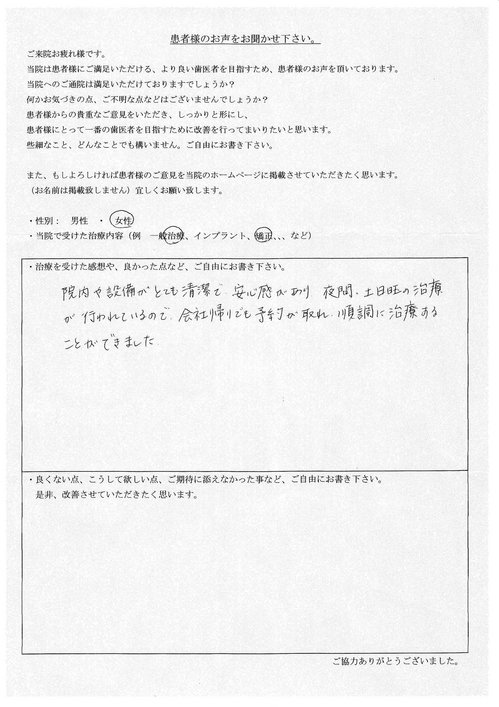 患者様のお声をお聞かせ下さい。
ご来院お疲れ様です。
当院は患者様にご満足いただける、より良い歯医者を目指すため、患者様のお声を頂いております。
当院へのご通院は満足いただけておりますでしょうか？
何かお気づきの点、ご不明な点などはございませんでしょうか？
患者様からの貴重なご意見をいただき、しっかりと形にし、
患者様にとって一番の歯医者を目指すために改善を行ってまいりたいと思います。
些細なこと、どんなことでも構いません。ご自由にお書き下さい。
また、もしよろしければ患者様のご意見を当院のホームページに掲載させていただきたく思います。
（お名前は掲載致しません）宜しくお願い致します。
・性別： 男性 ・ 女性
・当院で受けた治療内容（例 一般治療、インプラント、矯正、、、など）
・治療を受けた感想や、良かった点など、ご自由にお書き下さい。
院内や設備がとても清潔で、安心感があり 夜間、土日祝の治療
が行われているので、会社帰りでも予約が取れ、順調に治療する
ことができました
・良くない点、こうして欲しい点、ご期待に添えなかった事など、ご自由にお書き下さい。
是非、改善させていただきたく思います。
ご協力ありがとうございました。